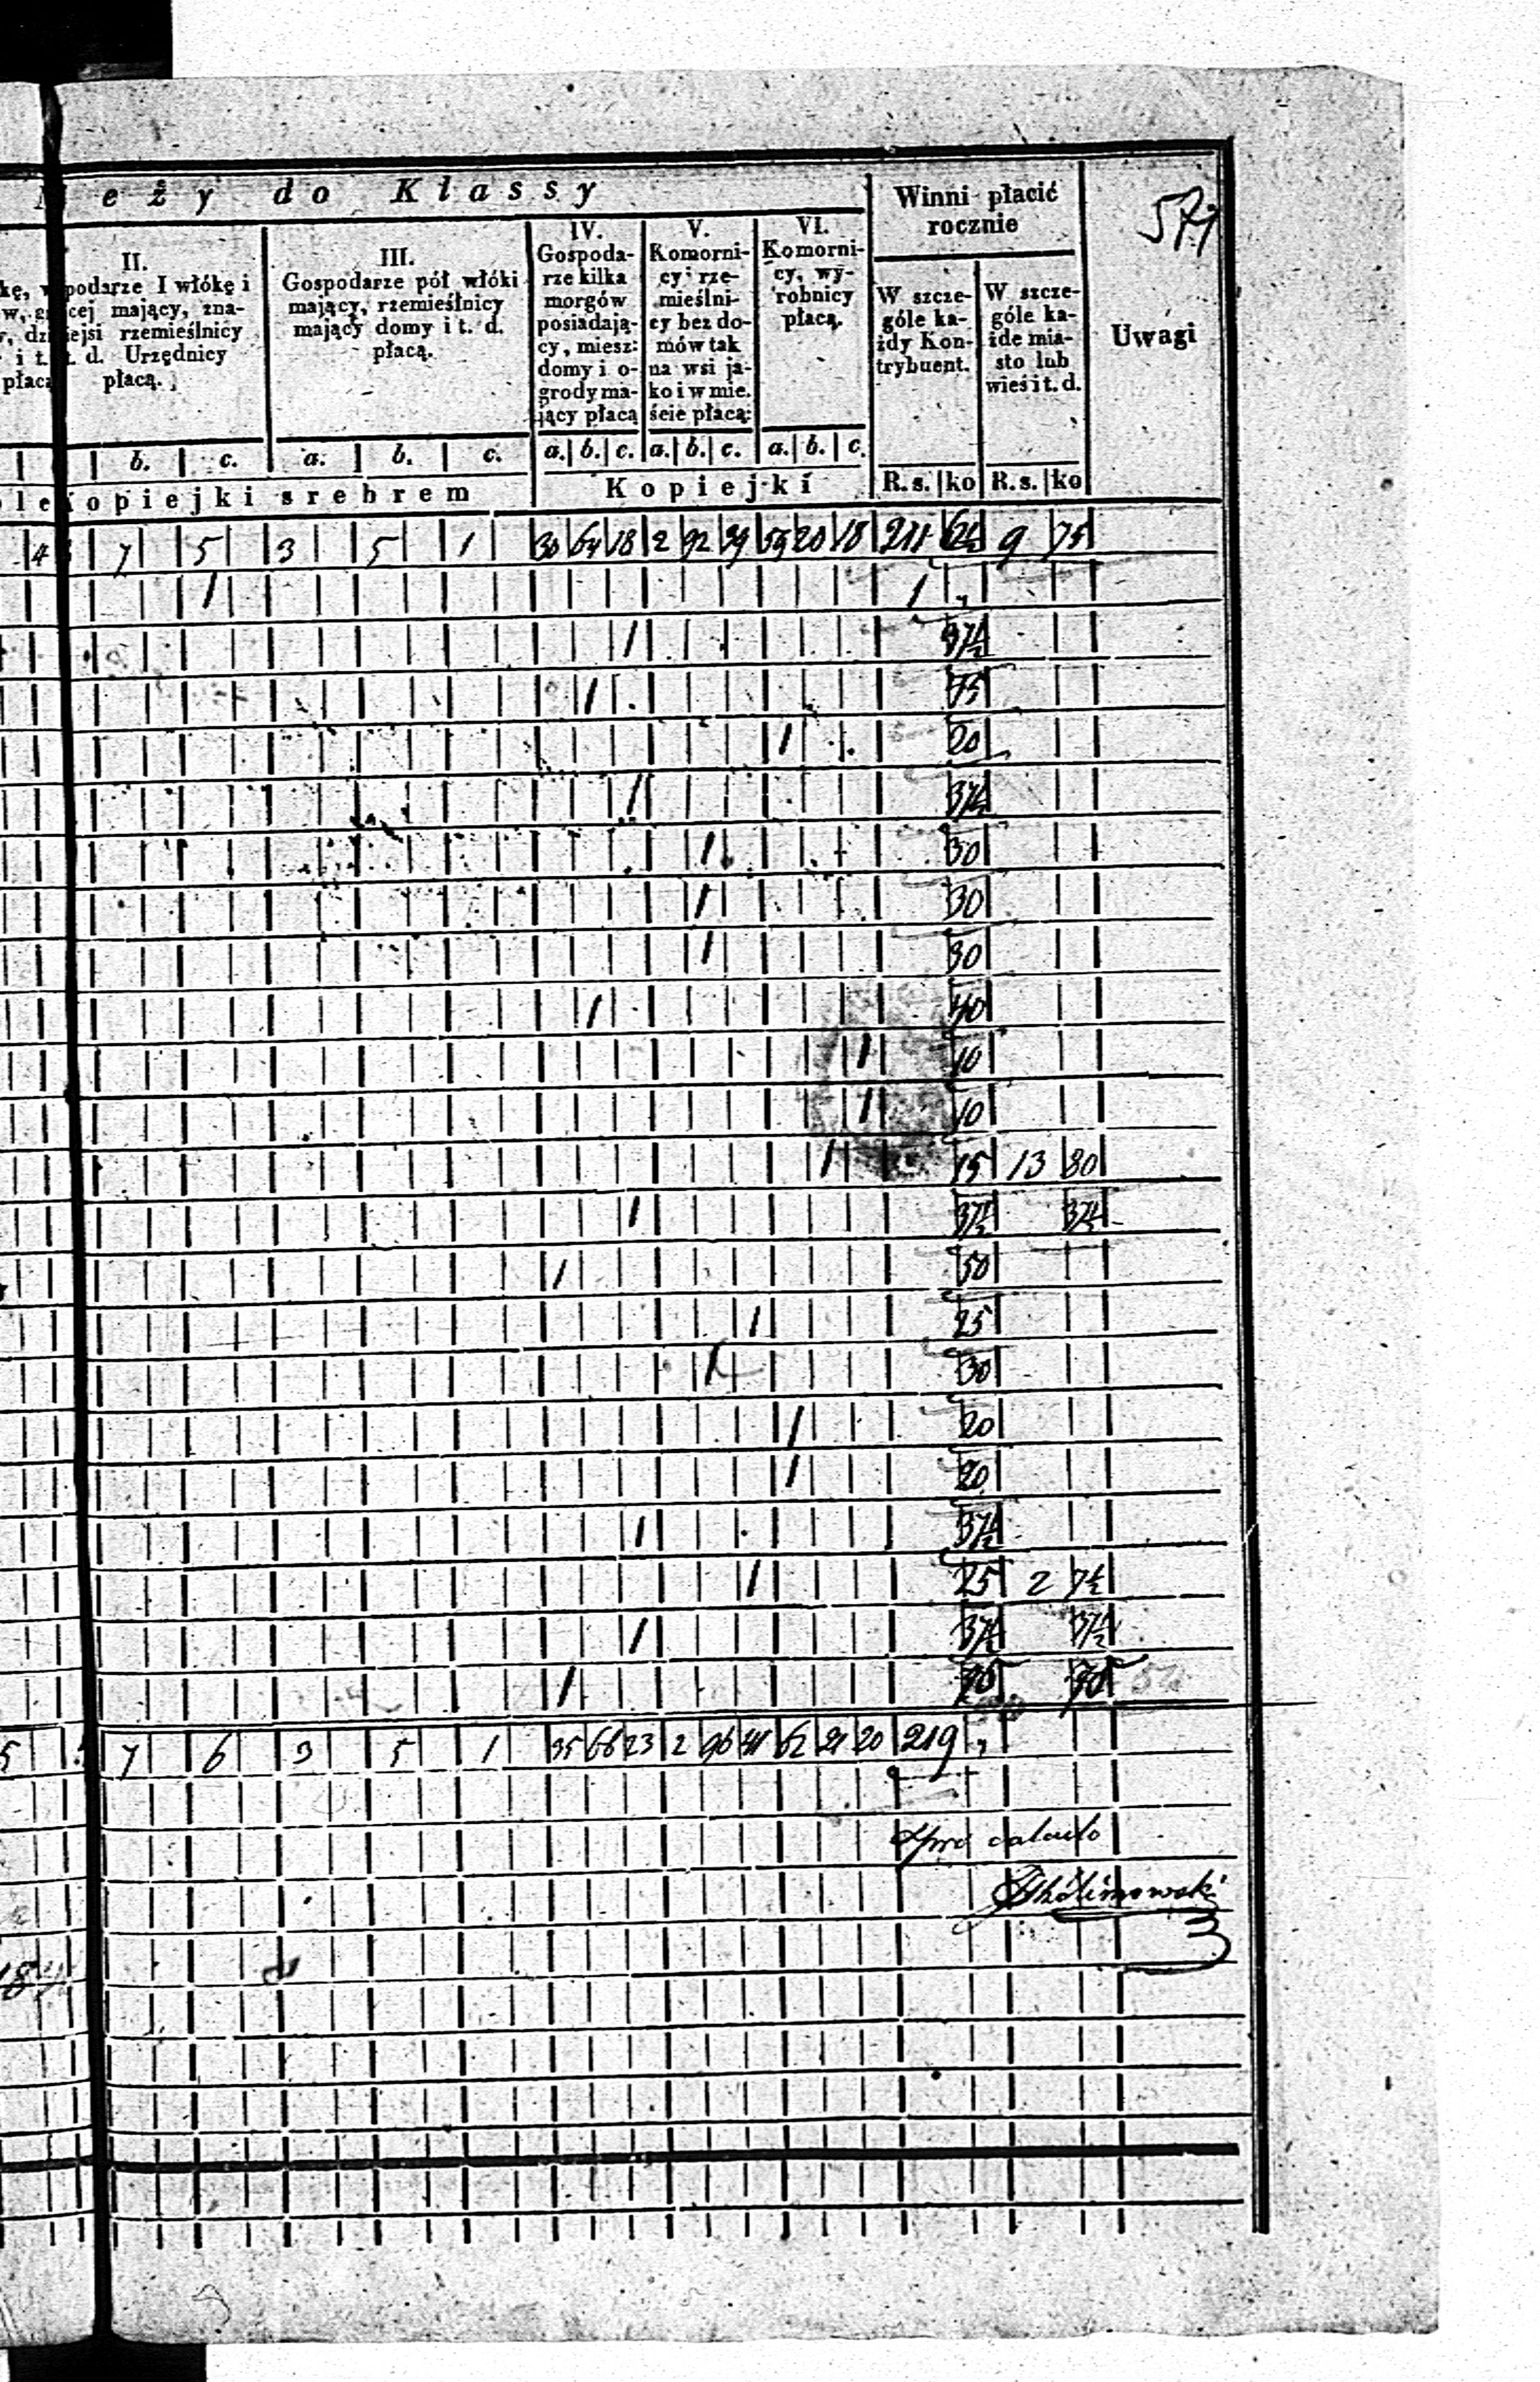 eży do Klassy
Winni płacić rocznie
579
II.
podarze I włókę i
cej mający, zna-
ejsi rzemieślnicy
t. d. Urzędnicy
płacą.
III.
Gospodarze pół włóki
mający, rzemieślnicy
mający domy i t. d.
płacą.
IV.
Gospoda-
rze kilka
morgów
posiadają-
cy, miesz:
domy i o-
grody ma-
jący płacą
V.
Komorni-
cy i rze-
mieślni-
cy bez do-
mów tak
na wsi ja-
ko i w mie.
ście płacą:
VI.
Komorni-
cy, wy-
robnicy
płacą.
W szcze-
góle ka-
żdy Kon-
trybuent.
W szcze-
góle ka-
żde mia-
sto lub
wieś i t. d.
Uwagi
b. c. a. b. c. a. b. c. a. b. c. a. b. c.
opiejki srebrem Kopiejki R. s. ko R. s. ko
4 7 5 3 5 1 30 64 18 2 92 39 59 20 18 211 62½ 9 75
1 1 „
1 37½
1 75
1 20
1 37½
1 30
1 30
1 30
1 40
1 10
1 10
1 15 13 80
1 37½ 37½
1 50
1 25
1 30
1 20
1 20
1 37½
1 25 2 7½
1 37½ 37½
1
5 7 6 3 5 1 35 66 23 2 96 41 62 21 20 219 „
pro calculo